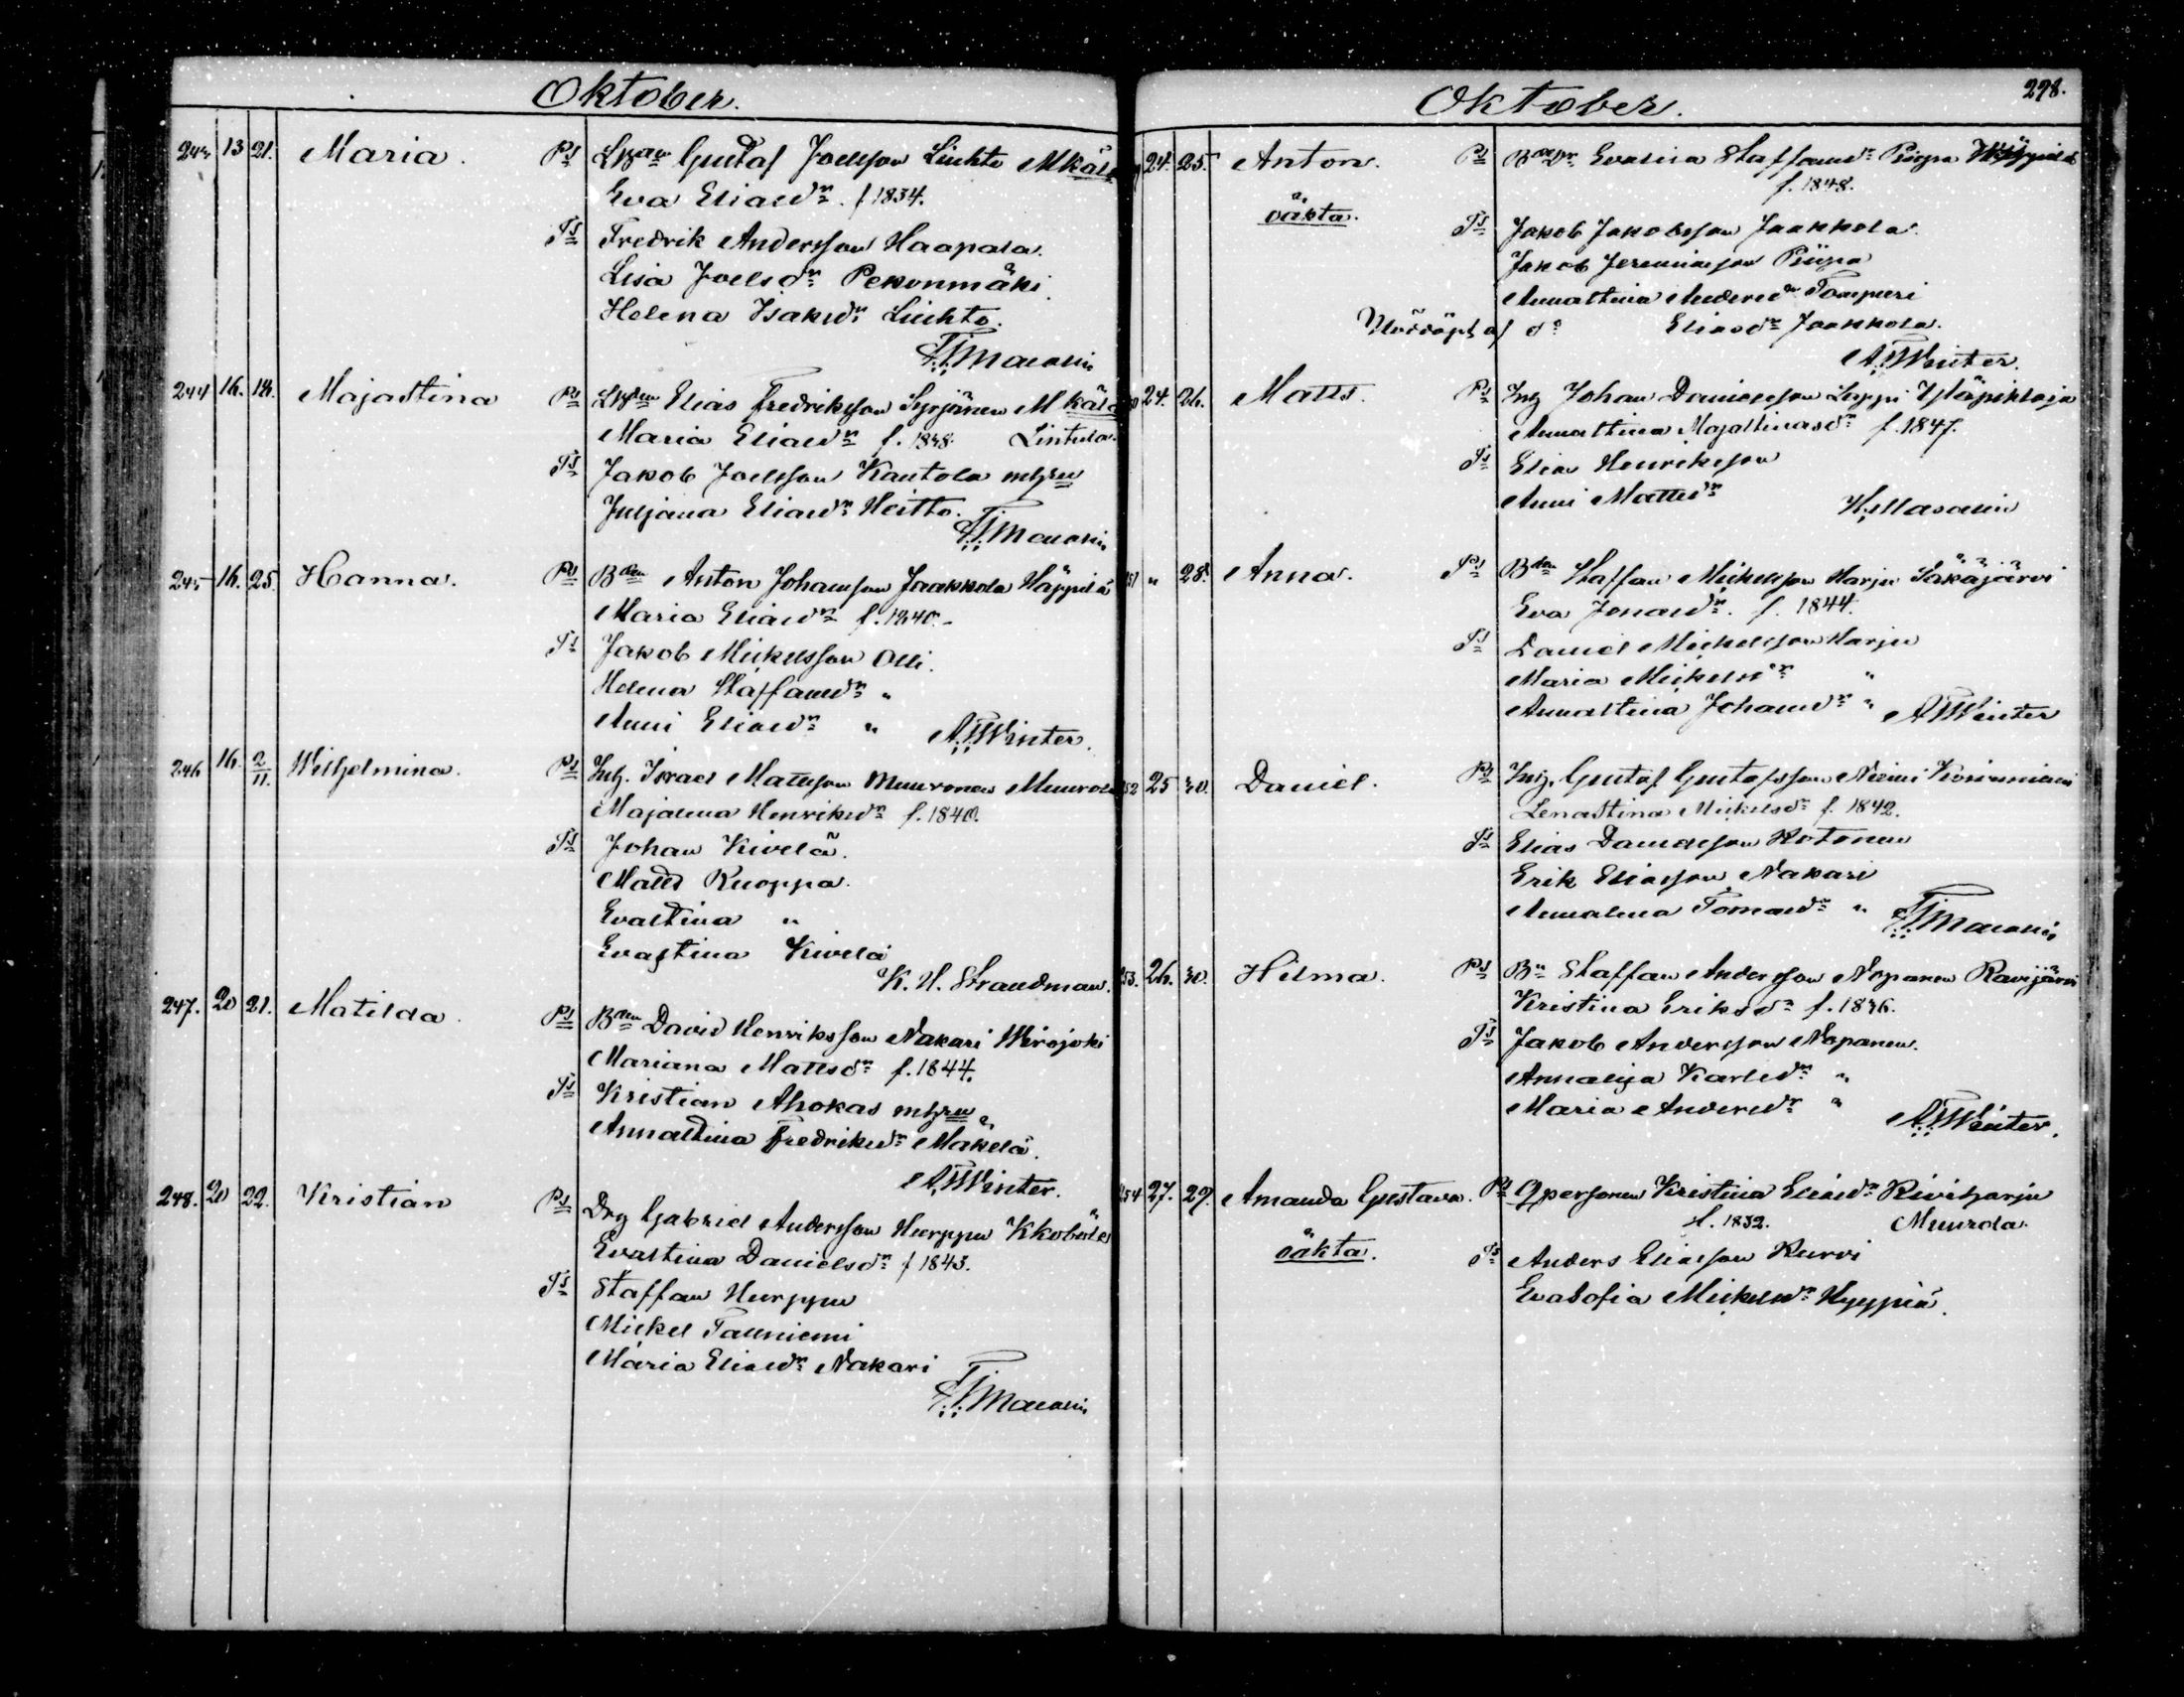 Oktober.
243 13 21. Maria. Ps Gustaf Joelsson Liuhto Mkälä
Eva Eliasdr. f 1834.
Ts Fredrik Andersson Haapala.
Lisa Joelsdr Pekonmäki
Helena Isaksdr Liuhto.
244 16. 18. Majastina Ps Elias Fredriksson Syrjänen Mkälä
Maria Eliasdr f. 1838. Lintula.
Ts Jakob Joelsson Kautola mhru
Juljana Eliasdr Heitto.
245 16. 25 Hanna. Ps Bden Anton Johansson Jaakkola Häppilä
Maria Eliasdr f. 1840.
Ts Jakob Mickelsson Olli.
Helena Staffansdr "
Anni Eliasdr " A.F.Winter.
246 16. 2/11. Wilhelmina. Ps Inh. Israel Mattsson Muuronen Muurola
Majalena Henriksdr f. 1840.
Ts Johan Kivelä.
Matts Kuoppa.
Evastina "
Evastina Kivelä
K. H. Strandman.
247. 20 21. Matilda. Ps Bden David Henriksson Nakari Wirojoki
Mariana Mattsdr f. 1844.
Ts Kristian Ahokas mhru
Annastina Fredriksdr Mäkelä.
A.F.Winter.
248. 20 22. Kristian Ps Drg Gabriel Andersson Hurppu
Evastina Danielsdr f 1843.
Ts Staffan Hurppu
Mickel Tallniemi
Maria Eliasdr Nakari
Oktober. 298.
24. 25. Anton. Ps Evalisa Staffansdr Piipa
f. 1848.
oäkta. Ts Jakob Jakobsson Jaakkola.
Jakob Jeremiasson Piipa
Annastina Andersdr Tompuri
Nöddöpt af do Eliasdr Jaakkola.
A.F.Winter.
24. 26. Matts. Ps Inh Johan Danielsson Lappi Yläpihlaja
Annastina Majastinasdr f. 1847.
Ts Elias Henriksson
Anni Mattsdr
H. Masalin
251 " 28. Anna. Ps Bden Staffan Mickelsson Harju Säkäjärvi
Eva Jonasdr. f. 1844.
Ts Daniel Mickelsson Harju
Maria Mickelsdr "
Annastina Johansdr " A.F.Winter
252 25 30. Daniel. Ps Inh. Gustaf Gustafsson Niemi
Lenastina Mickelsdr f. 1842.
Ts Elias Danielsson Rotonen
Erik Eliasson Nakari
Annalena Tomasdr "
253. 26. 30. Hilma. Ps Bn Staffan Andersson Nopanen Ravijärvi
Kristina Eriksdr f. 1836.
Ts Jakob Andersson Nopanen.
Annalisa Karlsdr "
Maria Andersdr "
A.F.Winter.
254 27. 29. Amanda Gustava. Ps Qpersonen Kristina Eliasdr Kiviharju
f. 1832. Muurola.
oäkta. Ts Anders Eliasson Kurvi
Evasofia Mickelsdr Hyyppiä.